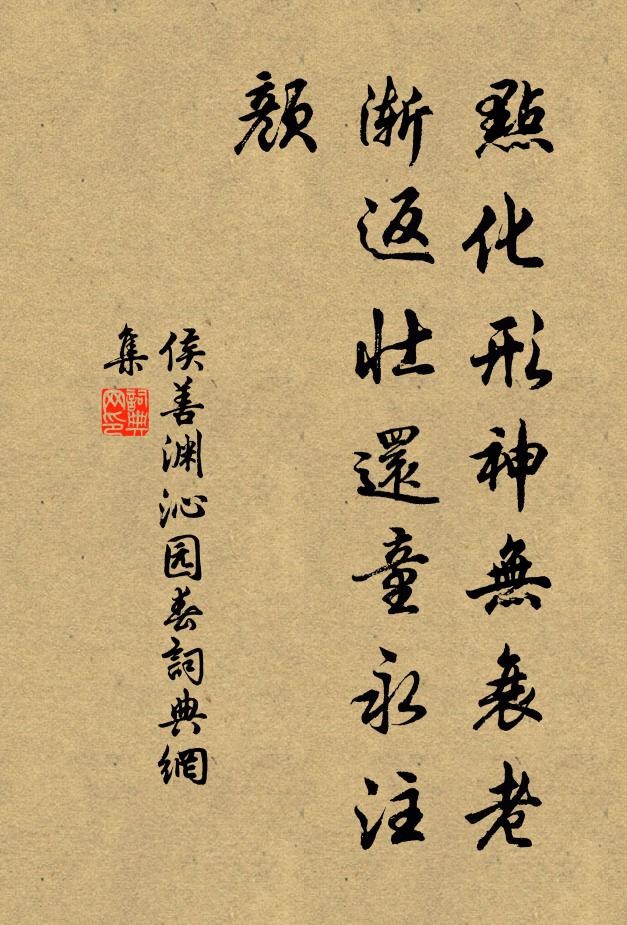 點化形神無衰老
漸返壯還童永注
顏
侯善渊沁园春詞典網
集
詞典
网印